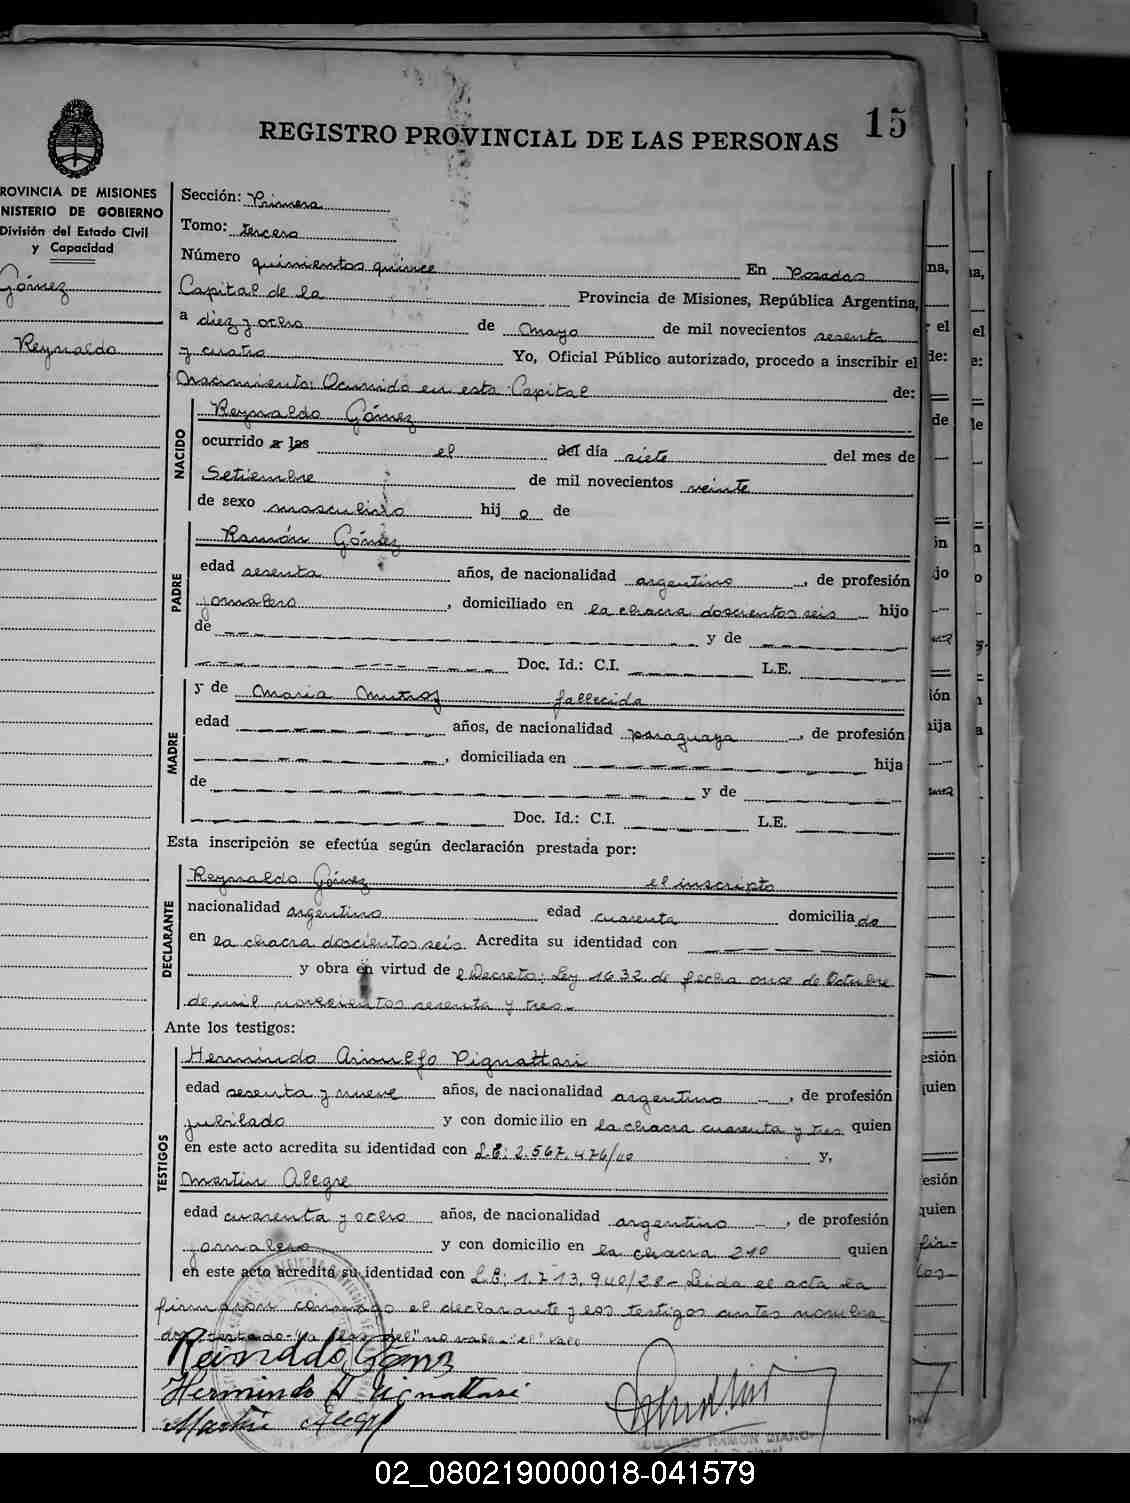 15
REGISTRO PROVINCIAL DE LAS PERSONAS
ROVINCIA DE MISIONES
NISTERIO DE GOBIERNO
División del Estado Civil
y Capacidad
Gómez
Reynaldo
Sección: Primera
Tomo: tercero
Número quinientos quince En Posadas
Capital de la Provincia de Misiones, República Argentina,
a diez y ocho de mayo de mil novecientos sesenta
y cuatro Yo, Oficial Público autorizado, procedo a inscribir el
Nacimiento: Ocurrido en esta Capital de:
NACIDO
Reynaldo Gómez
ocurrido a las el del día siete del mes de
Setiembre de mil novecientos veinte
de sexo masculino hij o de
PADRE
Ramón Gómez
edad sesenta años, de nacionalidad argentino, de profesión
jornalero, domiciliado en la chacra doscientos seis hijo
de y de
Doc. Id.: C.I. L.E.
MADRE
y de Maria fallecida
edad años, de nacionalidad paraguaya, de profesión
, domiciliada en hija
de y de
Doc. Id.: C.I. L.E.
Esta inscripción se efectúa según declaración prestada por:
DECLARANTE
Reynaldo Gómez el inscripto
nacionalidad argentino edad cuarenta domicilia do
en la chacra doscientos seis. Acredita su identidad con
y obra en virtud de el Decreto: Ley 1632 de fecha once de Octubre
de mil novecientos sesenta y tres.
Ante los testigos:
TESTIGOS
Hermindo Pignattari
edad sesenta y nueve años, de nacionalidad argentino, de profesión
jubilado y con domicilio en la chacra cuarenta y tres quien
en este acto acredita su identidad con L.E: 2.567.476/ y,
Martin Alegre
edad cuarenta y ocho años, de nacionalidad argentino, de profesión
jornalero y con domicilio en la chacra 210 quien
en este acto acredita su identidad con L.E: 1.713.940/28- Leida el acta la
firmaron conmigo el declarante y los testigos antes nombra-
dos, testado- "a las del" no vale - "el" vale
Reinaldo Gomez
Hermindo A Pignattari
Martin Alegre
RAMON
02_080219000018-041579